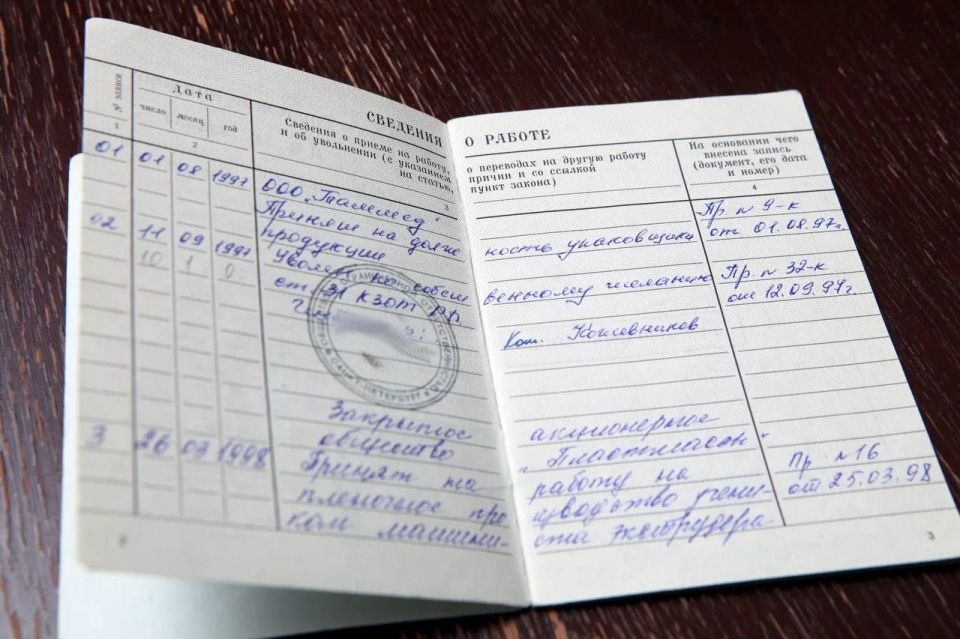 СВЕДЕНИЯ О РАБОТЕ
№ записи
Дата
число
месяц
год
Сведения о приеме на работу, о переводах на другую работу
и об увольнении (с указанием причин и со ссылкой
на статью, пункт закона)
На основании чего
внесена запись
(документ, его дата
и номер)
1
2
3
4
ООО "Таммед"
01 01 08 1997 Принят на должность упаковщика Пр №9-к
продукции от 01.08.97г.
02 11 09 1997 Уволен по собственному желанию Пр. № 32-к
ст. 31 КЗОТ РФ от 12.09.97г.
10 1 0
Кожевников
ОГРАНИЧЕННОЙ ОТВЕТСТВЕННОСТЬЮ
САНКТ-ПЕТЕРБУРГ
Закрытое акционерное
общество
3 26 03 1998 Принят на работу на Пр. №16
пленочное от 25.03.98
ком экструдера
3